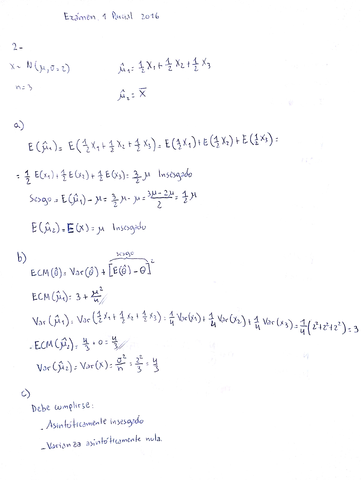 Examen 1 Parcial 2016
2-
X ~ N(μ, σ=2)
μ̂₁ = 1/2 X₁ + 1/2 X₂ + 1/2 X₃
n=3
μ̂₂ = X̄
a)
E(μ̂₁) = E(1/2 X₁ + 1/2 X₂ + 1/2 X₃) = E(1/2 X₁) + E(1/2 X₂) + E(1/2 X₃) =
= 1/2 E(X₁) + 1/2 E(X₂) + 1/2 E(X₃) = 3/2 μ Insesgado
Sesgo = E(μ̂₁) - μ = 3/2 μ - μ = (3μ - 2μ)/2 = 1/2 μ
E(μ̂₂) = E(X) = μ Insesgado
b)
sesgo
ECM(θ̂) = Var(θ̂) + [E(θ̂) - θ]²
ECM(μ̂₁) = 3 + μ²/4
Var(μ̂₁) = Var(1/2 X₁ + 1/2 X₂ + 1/2 X₃) = 1/4 Var(X₁) + 1/4 Var(X₂) + 1/4 Var(X₃) = 1/4 (2² + 2² + 2²) = 3
ECM(μ̂₂) = 4/3 + 0 = 4/3
Var(μ̂₂) = Var(X) = σ²/n = 2²/3 = 4/3
c)
Debe cumplirse:
- Asintóticamente insesgado
- Varianza asintóticamente nula.